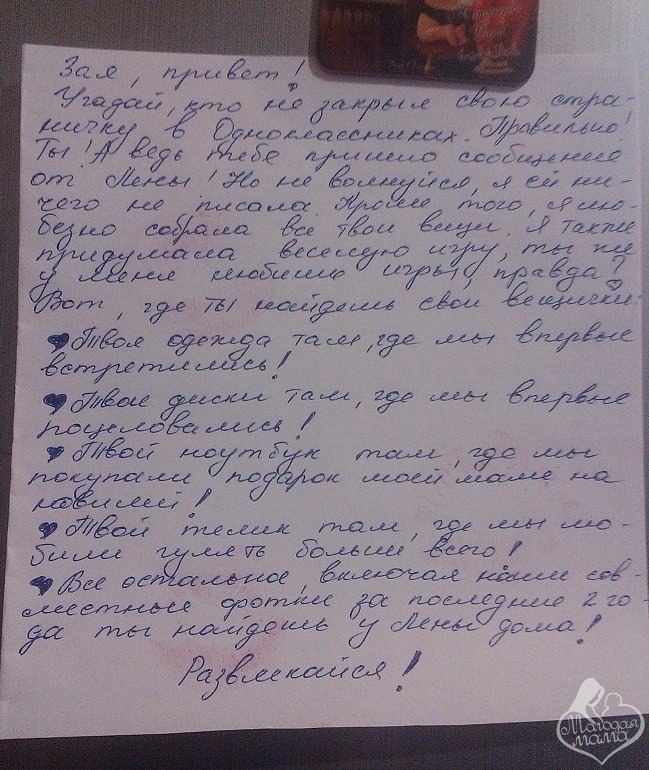 Зая, привет!
Угадай, кто не закрыл свою стра-
ничку в Одноклассниках. Правильно!
Ты! А ведь тебе пришло сообщение
от Лены! Но не волнуйся, я ей ни-
чего не писала. Кроме того, я лю-
безно собрала все твои вещи. Я также
придумала веселую игру, ты же
у меня любишь игры, правда?
Вот, где ты найдешь свои вещички:
Твоя одежда там, где мы впервые
встретились!
Твои диски там, где мы впервые
поцеловались!
Твой ноутбук там, где мы
покупали подарок моей маме на
юбилей!
Твой телик там, где мы лю-
били гулять больше всего!
Все остальное, включая наши сов-
местные фотки за последние 2 го-
да ты найдешь у Лены дома!
Развлекайся!
Молодая
мама